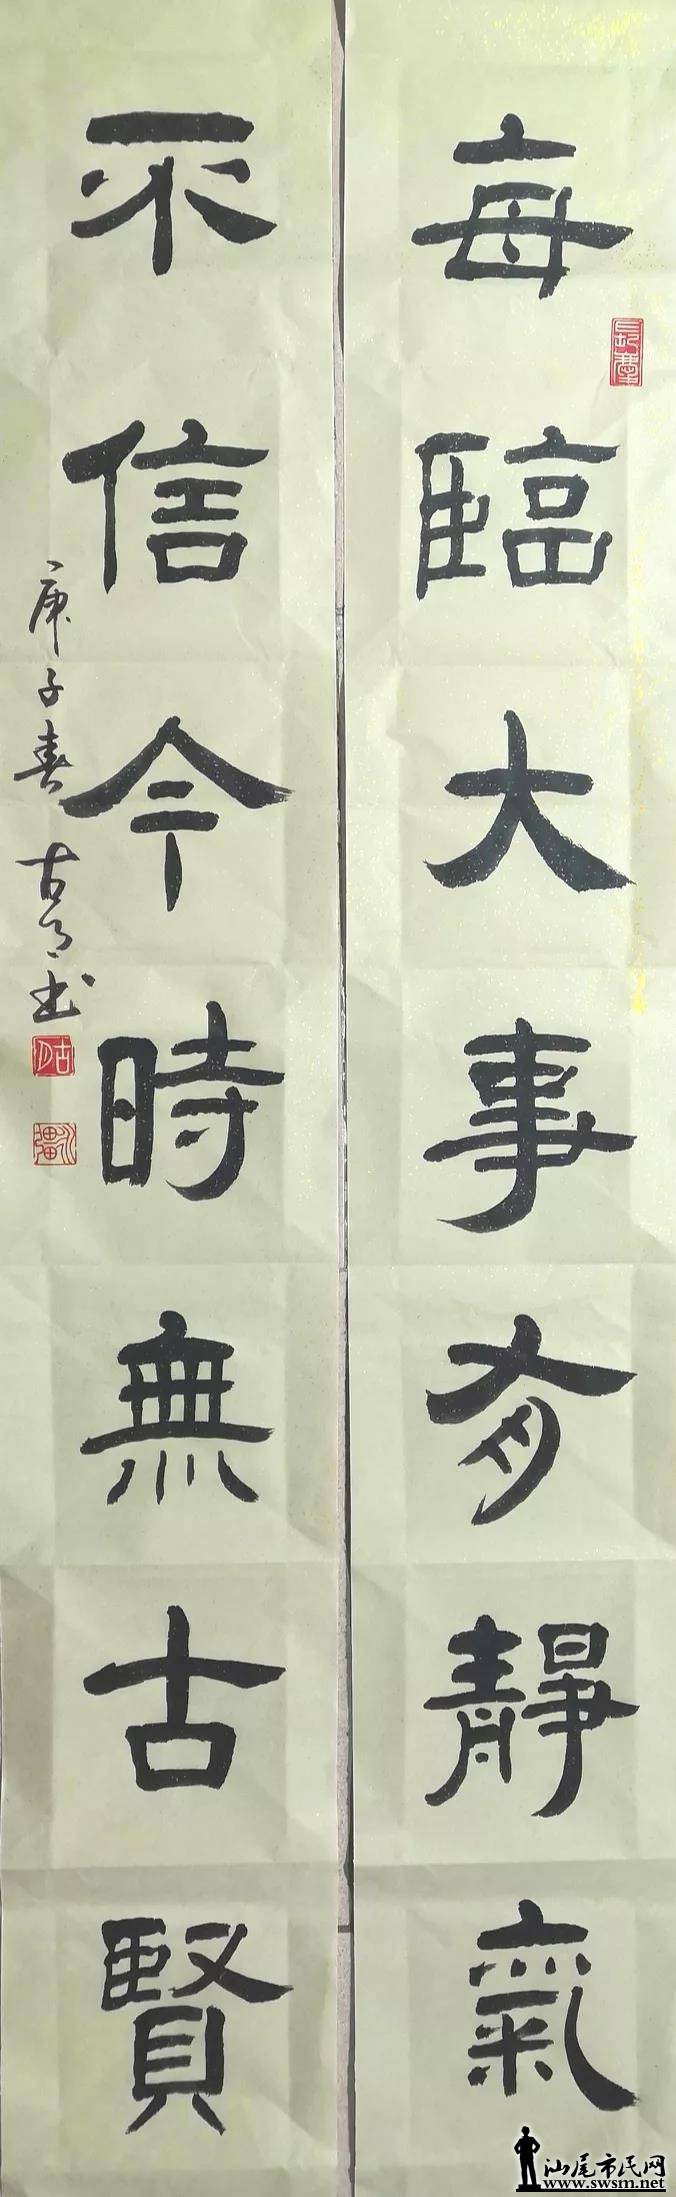 每臨大事有靜氣
不信今時無古賢
庚子春 古月書
汕尾市民网
www.swsm.net